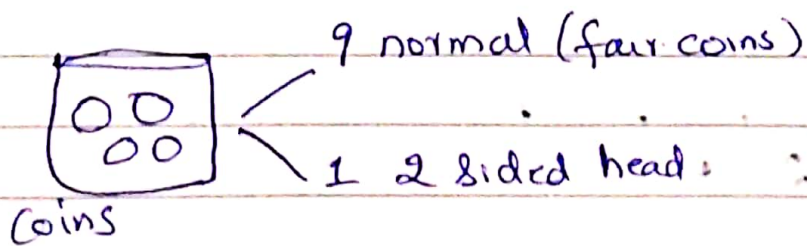 9 normal (fair coins)
1 2 sided head.
Coins